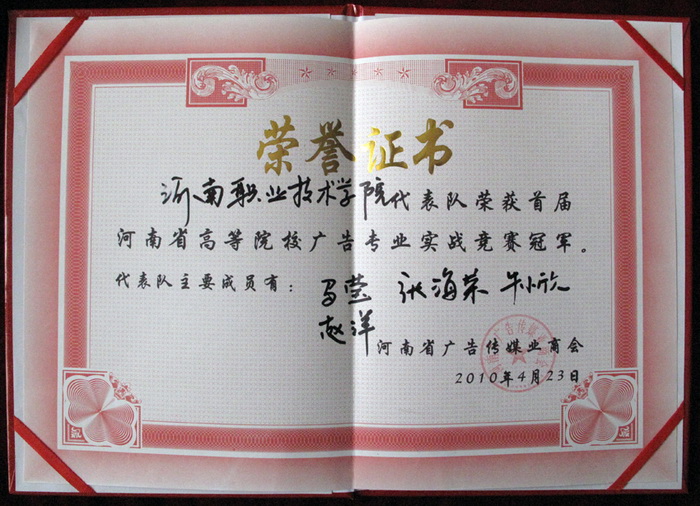 荣誉证书
河南职业技术学院代表队荣获首届
河南省高等院校广告专业实战竞赛冠军。
代表队主要成员有：马莹 张海荣
赵洋
河南省广告传媒业商会
2010年4月23日